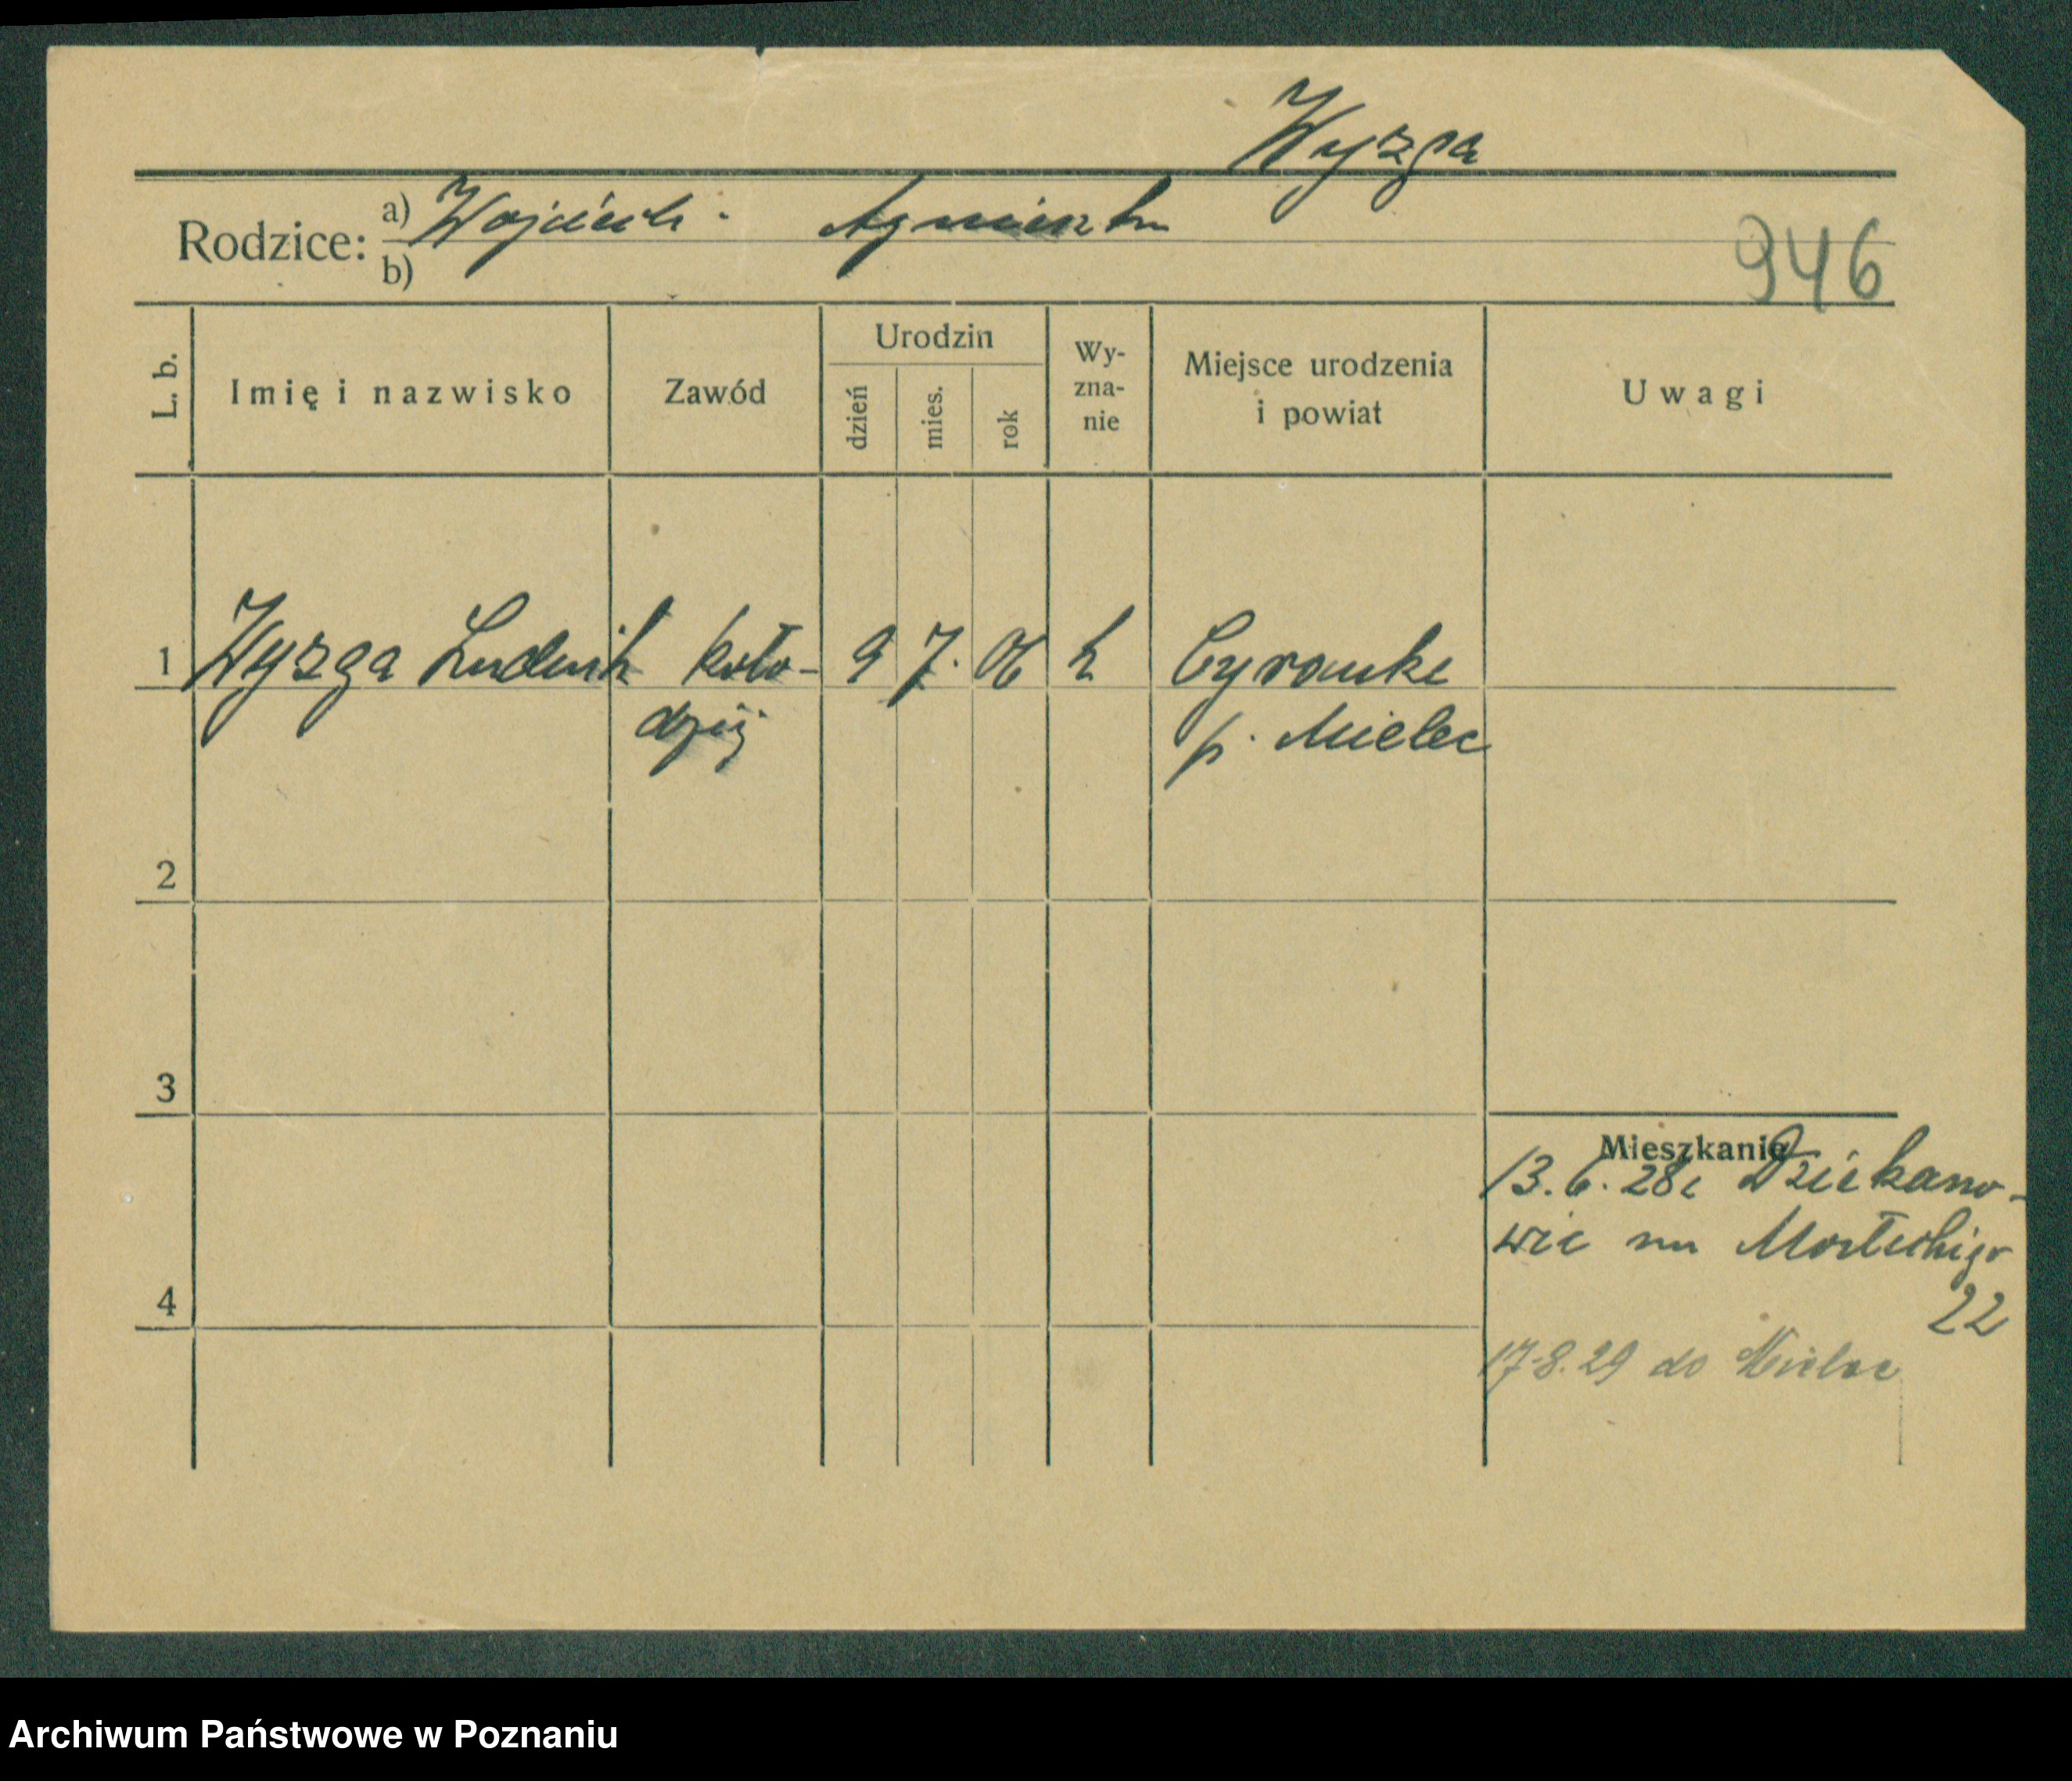 Wyzga
Rodzice: a) Wojciech. Agnieszka
b)
946
L. b. Imię i nazwisko Zawód Urodzin dzień mies. rok Wy-zna-nie Miejsce urodzenia i powiat Uwagi
1 Wyzga Ludwik koło- 9 7. 06 k Cyranke
dziej p. Mielec
2
3
Mieszkanie
13.6.28 z Dziekano-
wic na
22
4
17.8.29 do Mielec
Archiwum Państwowe w Poznaniu